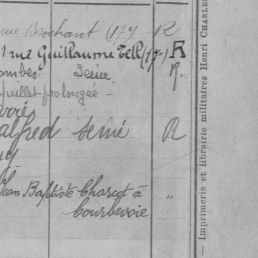 rue Brochant (17e) R
1 rue Guillaume Tell (17e) R
ombes Seine R.
juillet prolongée -
alfred
R
Jean Baptiste Charcot à "
Courbevoie
— Imprimerie et librairie militaires Henri CHARLES